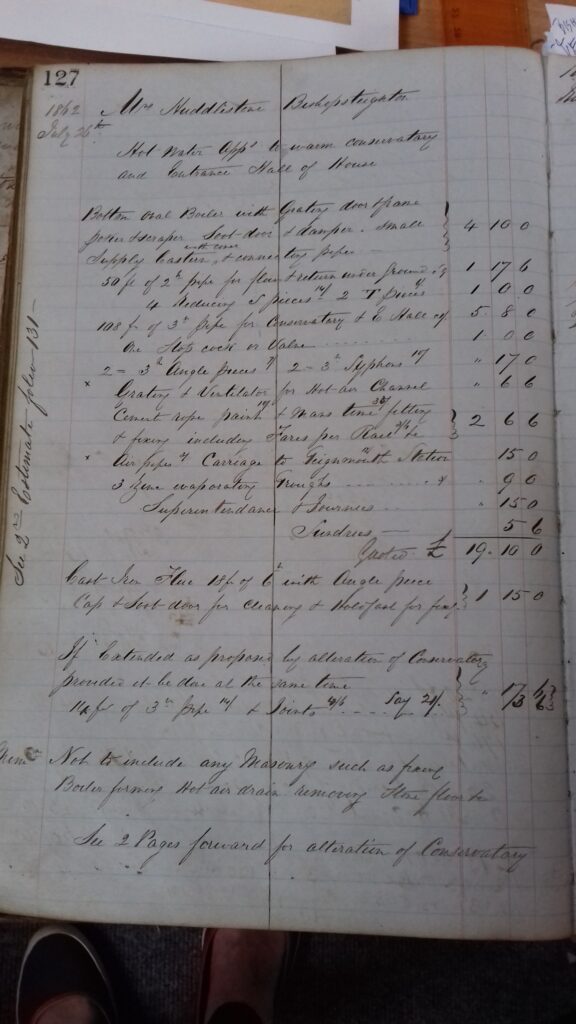 127
1862
July 26th
Mrs Huddlestone Bishopsteignton
Hot Water Apps to warm conservatory
and Entrance Hall of House
Bottom oval Boiler with Grating door & frame
poker & scraper Soot door & damper. Small 4 10 0
with cover
Supply Cistern & connecting pipes
50 ft of 2in pipe for flow & return under ground 1 17 6
4 Reducing S pieces 2 T pieces 1 0 0
108 ft of 3in pipe for Conservatory & E Hall 5. 8 0
One Stop cock or Valve 1 0 0
2 = 3in Angle pieces 2 = 3in Syphons " 17 0
x Grating & Ventilator for Hot air Channel " 6 6
Cement rope paint & Mans time fitting
& fixing including Fares per Rail &c 2 6 6
x Air pipes Carriage to Teignmouth Station 15 0
3 Zinc evaporating Troughs " 9 0
Superintendance & Journies " 15 0
Sundries 5 6
£ 19. 10 0
Cast Iron Flue 18 ft of 6in with Angle piece
Cap & Soot door for cleaning & Holdfast for fixing 1 15 0
If Extended as proposed by alteration of Conservatory
provided it be done at the same time
ft of 3in pipe & Joints Say
Not to include any Masonry such as fixing
Boiler forming Hot air drain removing Stone floor &c
See 2 Pages forward for alteration of Conservatory
See 2nd Estimate folio 131